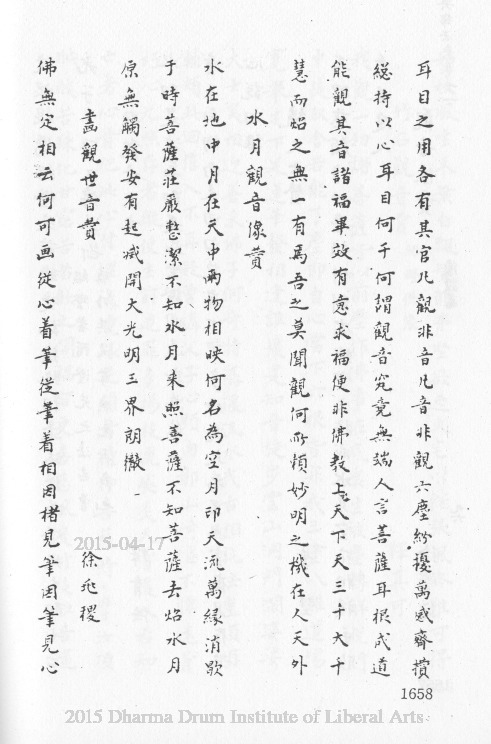 耳目之用各有其官凡觀非音凡音非觀六塵紛擾萬感齊攢
総持以心耳目何千何謂觀音究竟無端人言菩薩耳根成道
能觀其音諸福畢效有意求福便非佛教上天下天三千大千
慧而焰之無一有焉吾之莫聞觀何所煩妙明之機在人天外
水月觀音像贊
水在地中月在天中兩物相映何名為空月印天流萬緣消歇
于時菩薩莊嚴慧潔不知水月來照菩薩不知菩薩去焰水月
原無觸發安有起滅開大光明三界朗徹
畵觀世音贊
徐
佛無定相云何可画從心着筆從筆着相因楮見筆因筆見心
1658
2015-04-17
2015 Dharma Drum Institute of Liberal Arts